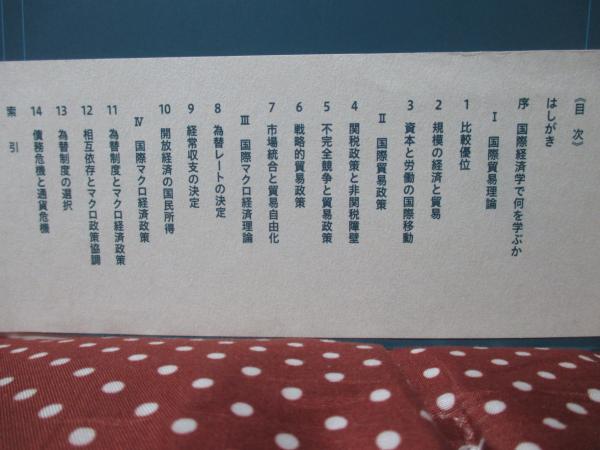 《目 次》
はしがき
序 国際経済学で何を学ぶか
Ⅰ 国際貿易理論
1 比較優位
2 規模の経済と貿易
3 資本と労働の国際移動
Ⅱ 国際貿易政策
4 関税政策と非関税障壁
5 不完全競争と貿易政策
6 戦略的貿易政策
7 市場統合と貿易自由化
Ⅲ 国際マクロ経済理論
8 為替レートの決定
9 経常収支の決定
10 開放経済の国民所得
Ⅳ 国際マクロ経済政策
11 為替制度とマクロ経済政策
12 相互依存とマクロ政策協調
13 為替制度の選択
14 債務危機と通貨危機
索 引